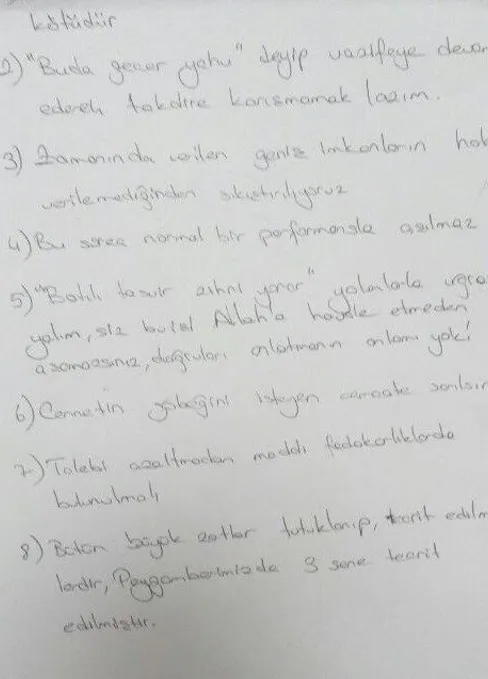 kötüdür
2) "Buda geçer yahu" deyip vazifeye devam
ederek takdire karışmamak lazım.
3) Zamanında verilen geniş imkanların hak
verilemediğinden sıkıştırılıyoruz
4) Bu süreç normal bir performansla aşılmaz
5) "Batılı tasvir zihni yorar" yalanlarla uğraş
yalım, siz bu işi Allah'a havale etmeden
aşamazsınız, doğruları anlatmanın anlamı yok!
6) Cennetin göbeğini isteyen cemaate sarılsın
7) Talebi azaltmadan maddi fedakarlıklarda
bulunulmalı
8) Bütün büyük zatlar tutuklanıp, tecrit edilm
lerdir, Peygamberimizde 3 sene tecrit
edilmiştir.